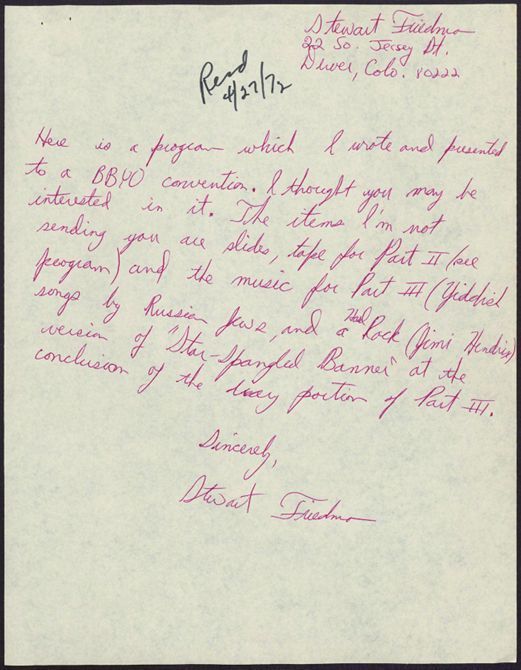 Stewart Friedman
22 So. Jersey St.
Denver, Colo. 80222
Read
4/27/72
Here is a program which I wrote and presented
to a BBYO convention. I thought you may be
interested in it. The items I'm not
sending you are slides, tape for Part II (see
program) and the music for Part III (Yiddish
songs by Russian Jews, and a Hard Rock (Jimi Hendrix)
version of "Star-Spangled Banner" at the
conclusion of the very portion of Part III.
Sincerely,
Stewart Friedman